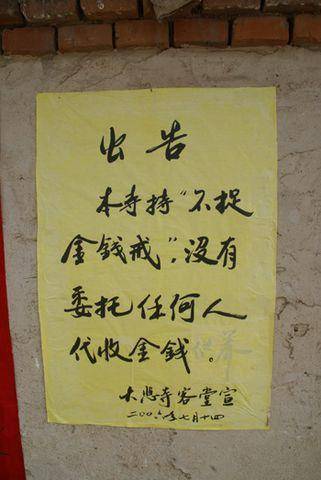 出告
本寺持“不捉
金钱戒”,没有
委托任何人
代收金钱。
大悲寺客堂宣
二00六年七月十四